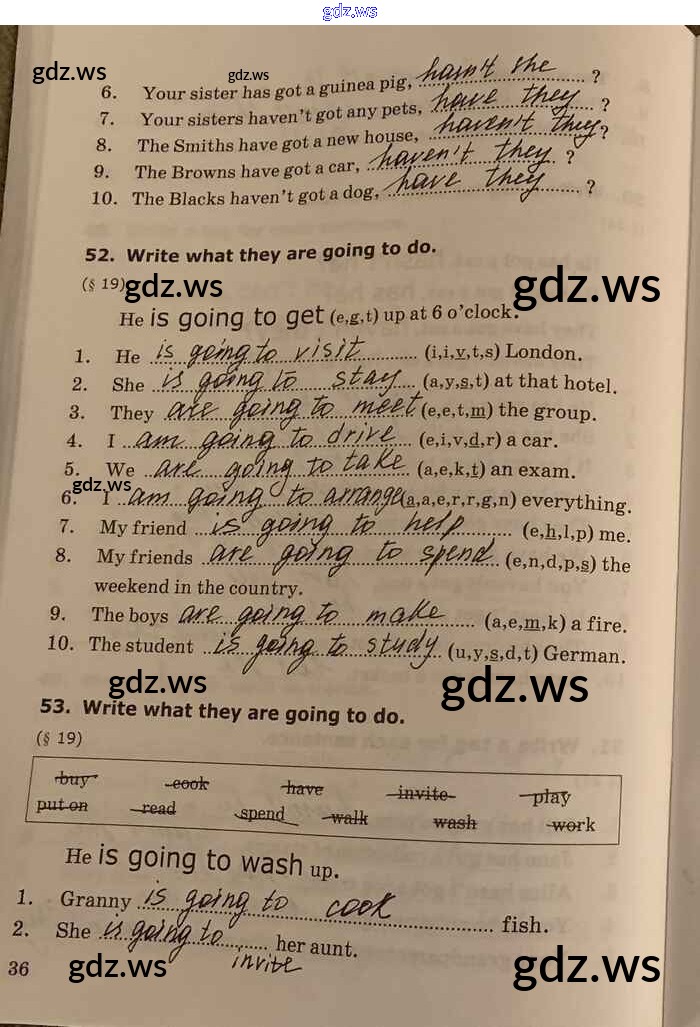 gdz.ws
gdz.ws gdz.ws
6. Your sister has got a guinea pig, hasn't she ?
7. Your sisters haven't got any pets, have they ?
8. The Smiths have got a new house, haven't they ?
9. The Browns have got a car, haven't they ?
10. The Blacks haven't got a dog, have they ?
52. Write what they are going to do.
(§ 19)
gdz.ws gdz.ws
He is going to get (e,g,t) up at 6 o'clock.
1. He is going to visit (i,i,v,t,s) London.
2. She is going to stay (a,y,s,t) at that hotel.
3. They are going to meet (e,e,t,m) the group.
4. I am going to drive (e,i,v,d,r) a car.
5. We are going to take (a,e,k,t) an exam.
gdz.ws
6. I am going to arrange (a,a,e,r,r,g,n) everything.
7. My friend is going to help (e,h,l,p) me.
8. My friends are going to spend (e,n,d,p,s) the
weekend in the country.
9. The boys are going to make (a,e,m,k) a fire.
10. The student is going to study (u,y,s,d,t) German.
gdz.ws gdz.ws
53. Write what they are going to do.
(§ 19)
buy cook have invite play
put on read spend walk wash work
He is going to wash up.
1. Granny is going to cook fish.
2. She is going to her aunt.
invite
36 gdz.ws gdz.ws